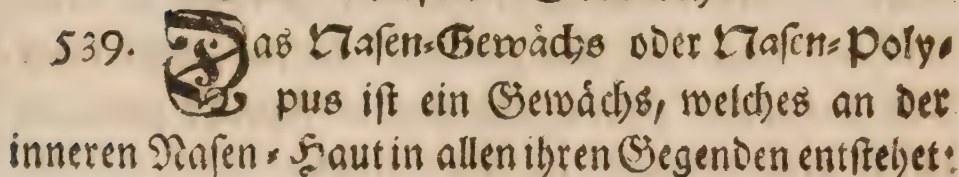 539. Das Nasen-Gewächs oder Nasen-Poly-
pus ist ein Gewächs, welches an der
inneren Nasen-Haut in allen ihren Gegenden entstehet: